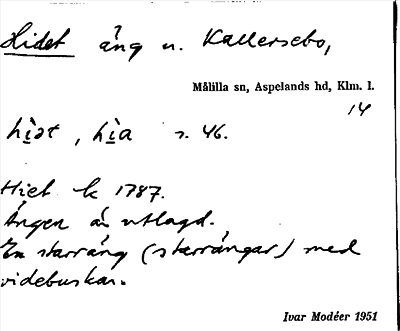 Hidet äng u. Kallersebo,
Målilla sn, Aspelands hd, Klm. l.
14
hìət, hìa s. 46.
Hiet k 1787.
Ängen är utlagd.
En starräng (starrängar) med
videbuskar.
Ivar Modéer 1951